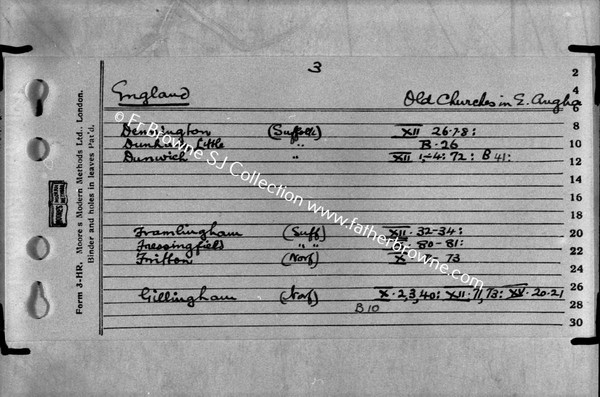 3
England Old Churches in E. Anglia
Dennington (Suffolk) XII 26.7.8:
Dunham Little " B. 26
Dunwich " XII 1,-4: 72: B 41:
Framlingham (Suff) XII. 32-34:
Fressingfield " " 80-81:
Fritton (Norf) X 73
Gillingham (Norf) X. 2,3,40: XII. 71,73: XV. 20.21
B 10
2
4
6
8
10
12
14
16
18
20
22
24
26
28
30
Form 3-HR. Moore's Modern Methods Ltd., London.
Binder and holes in leaves Pat'd.
© Fr Browne SJ Collection www.fatherbrowne.com